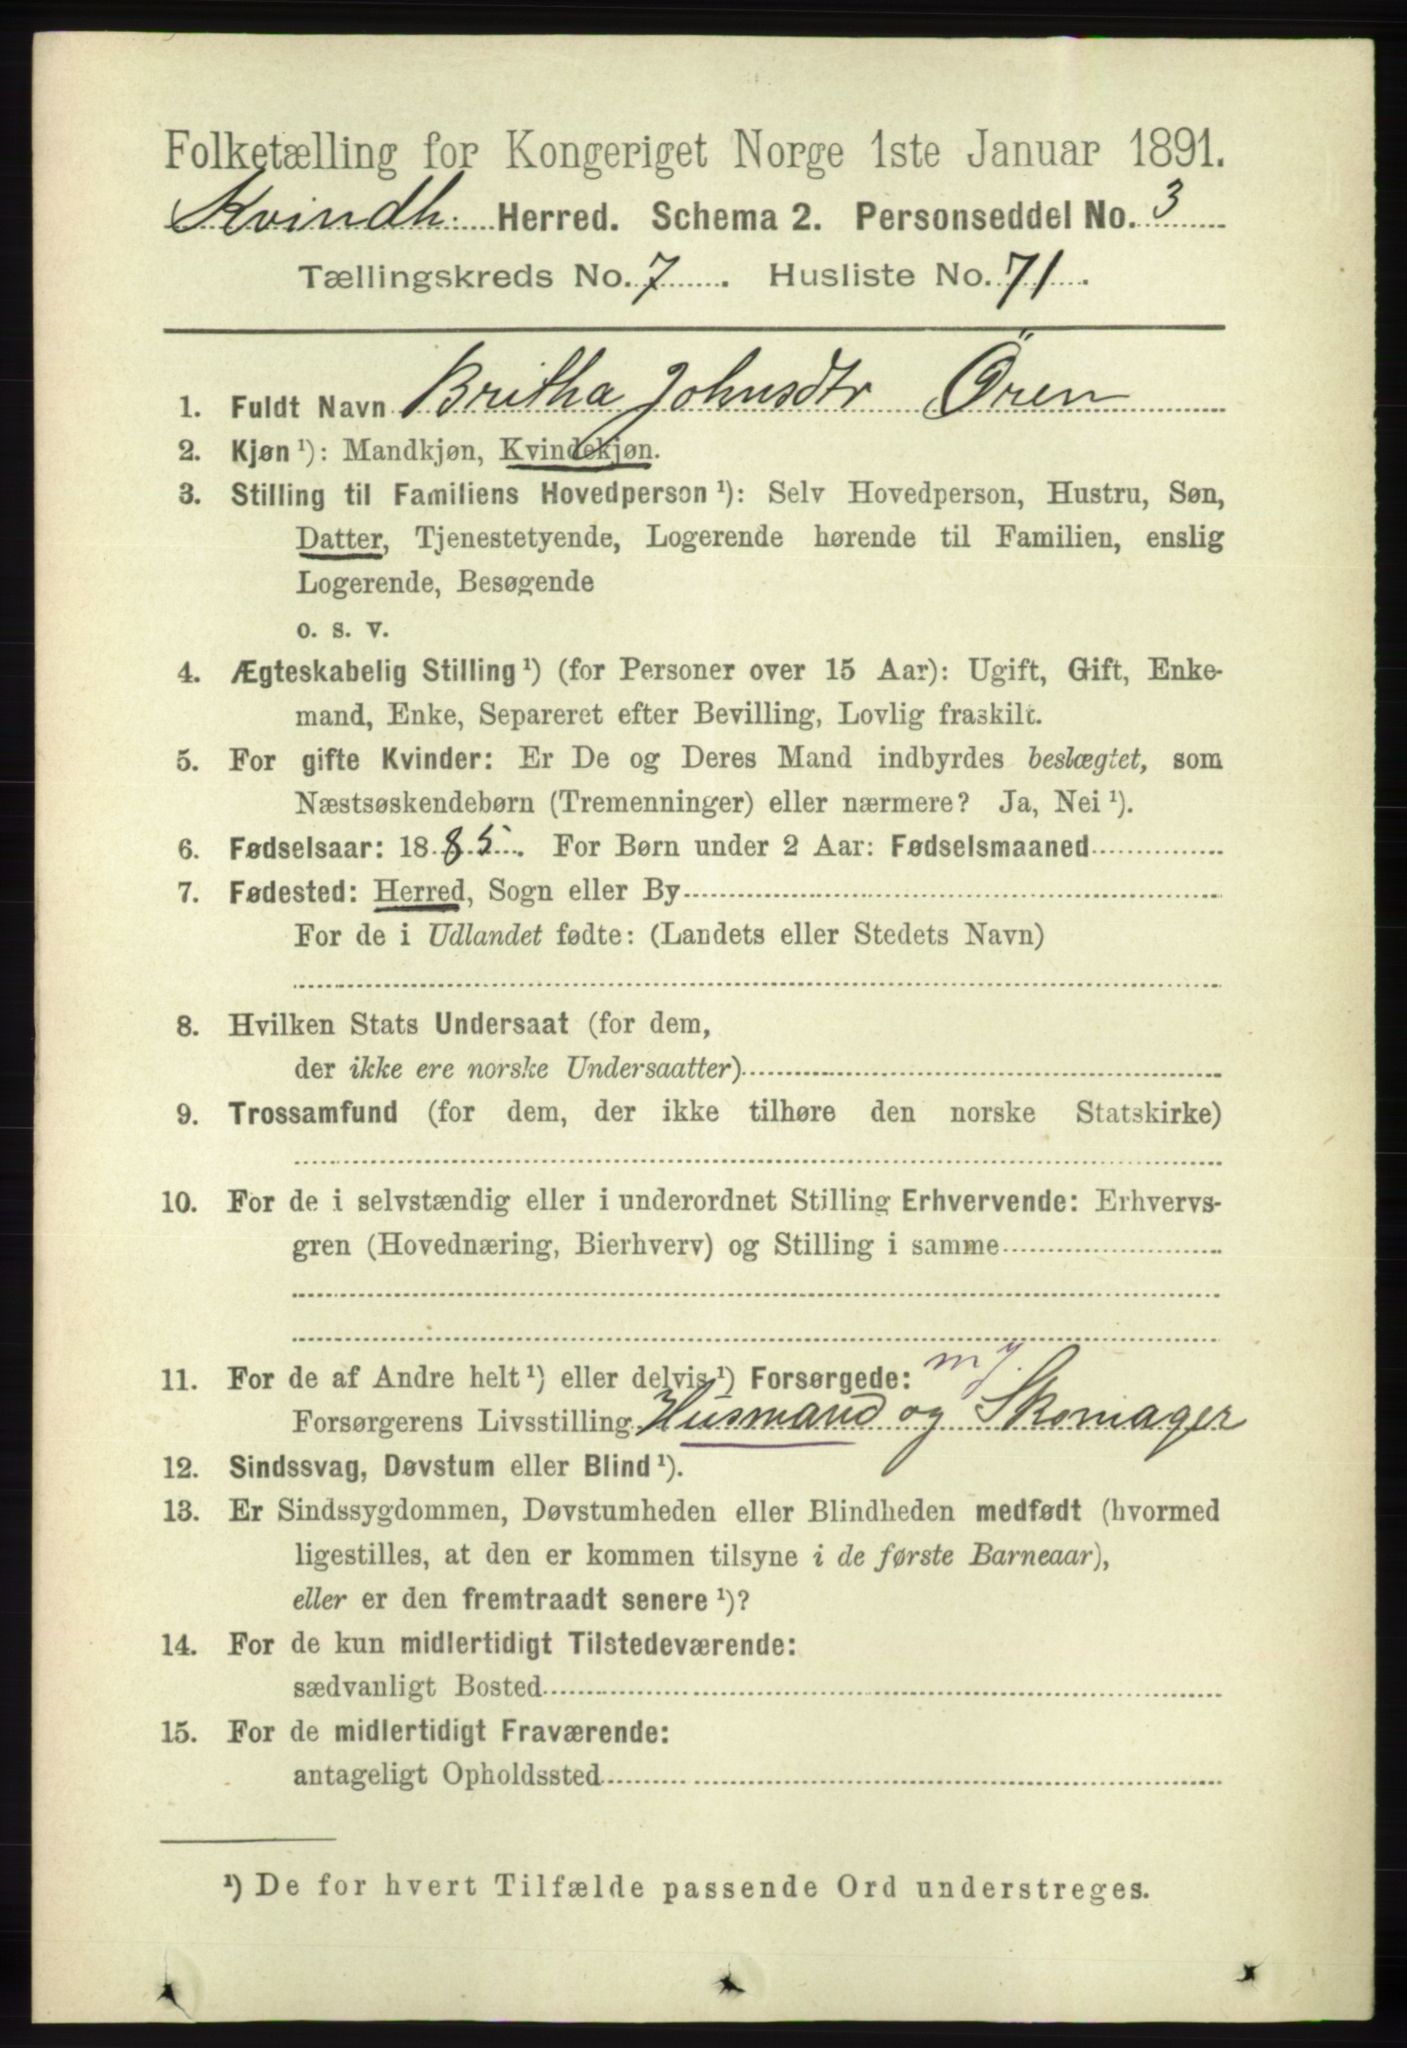 Folketælling for Kongeriget Norge 1ste Januar 1891.
Kvindh. Herred. Schema 2. Personseddel No. 3
Tællingskreds No. 7. Husliste No. 71.
1. Fuldt Navn Britha Johnsdtr Ören
2. Kjøn ¹): Mandkjøn, Kvindekjøn.
3. Stilling til Familiens Hovedperson ¹): Selv Hovedperson, Hustru, Søn,
Datter, Tjenestetyende, Logerende hørende til Familien, enslig
Logerende, Besøgende
o. s. v.
4. Ægteskabelig Stilling ¹) (for Personer over 15 Aar): Ugift, Gift, Enke-
mand, Enke, Separeret efter Bevilling, Lovlig fraskilt.
5. For gifte Kvinder: Er De og Deres Mand indbyrdes beslægtet, som
Næstsøskendebørn (Tremenninger) eller nærmere? Ja, Nei ¹).
6. Fødselsaar: 1885. For Børn under 2 Aar: Fødselsmaaned
7. Fødested: Herred, Sogn eller By
For de i Udlandet fødte: (Landets eller Stedets Navn)
8. Hvilken Stats Undersaat (for dem,
der ikke ere norske Undersaatter)
9. Trossamfund (for dem, der ikke tilhøre den norske Statskirke)
10. For de i selvstændig eller i underordnet Stilling Erhvervende: Erhvervs-
gren (Hovednæring, Bierhverv) og Stilling i samme
11. For de af Andre helt ¹) eller delvis ¹) Forsørgede: m J.
Forsørgerens Livsstilling Husmand og Skomager
12. Sindssvag, Døvstum eller Blind ¹).
13. Er Sindssygdommen, Døvstumheden eller Blindheden medfødt (hvormed
ligestilles, at den er kommen tilsyne i de første Barneaar),
eller er den fremtraadt senere ¹)?
14. For de kun midlertidigt Tilstedeværende:
sædvanligt Bosted
15. For de midlertidigt Fraværende:
antageligt Opholdssted
¹) De for hvert Tilfælde passende Ord understreges.